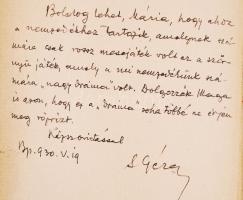 Boldog lehet, Mária, hogy ahoz
a nemzedékhez tartozik, amelynek szá-
mára csak rossz mesejáték volt ez a ször-
nyű játék, amely a mi nemzedékünk szá-
mára, nagy dráma volt. Dolgozzék Maga
is azon, hogy ez a „dráma" soha többé ne érjen
meg repríze.
Kézszorítással
Bp. 930. V. 19
S. Géza